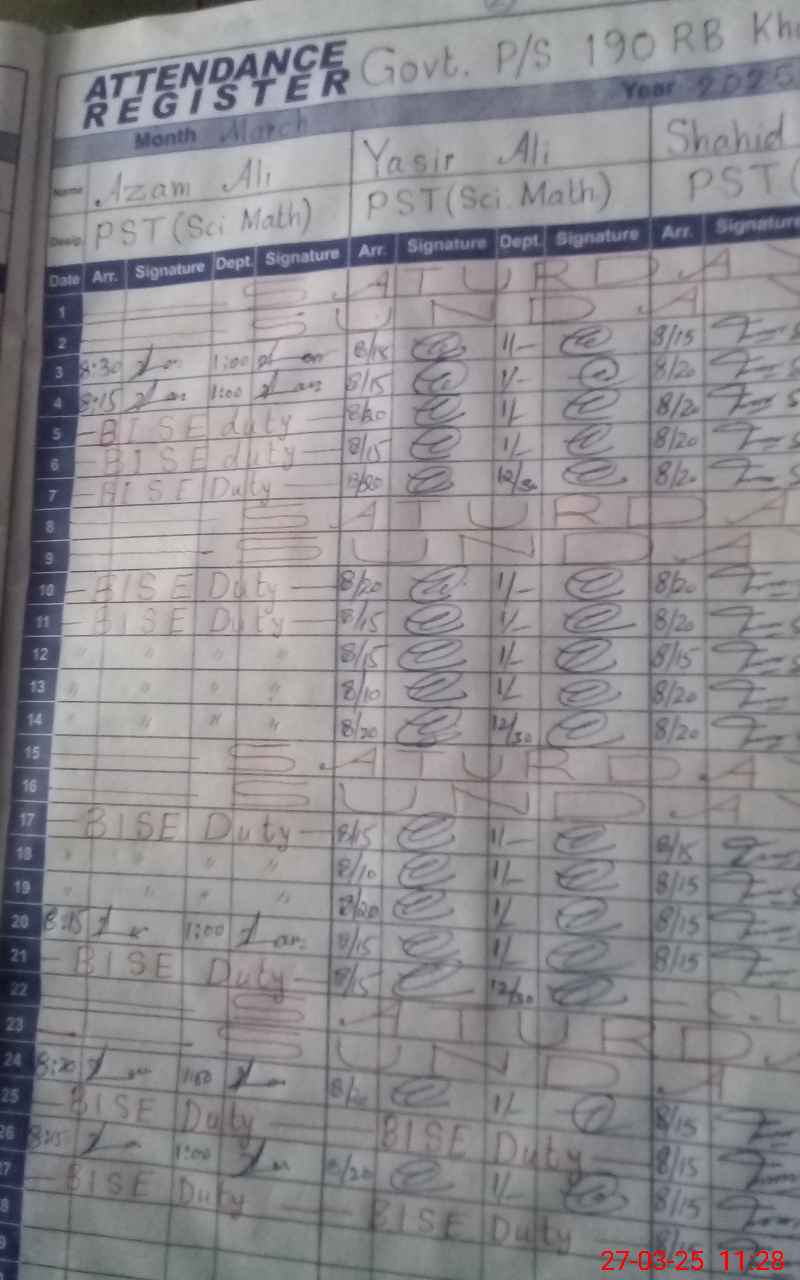 ATTENDANCE Govt. P/S 190 RB Kh
REGISTER Year 2025
Month March
Name Azam Ali Yasir Ali Shahid
Desig. PST (Sci Math) PST (Sci. Math) PST (
Date Arr. Signature Dept. Signature Arr. Signature Dept. Signature Arr. Signature
1 SATURDAY
2 SUNDAY
3 8:30 1:00 8/15 1/- 8/15
4 8:15 1:00 8/15 1/- 8/20
5 BISE duty 8/20 1/- 8/20
6 BISE duty 8/15 1/- 8/20
7 BISE Duty 8/20 12/30 8/20
8 SATURDA
9 SUNDA
10 BISE Duty 8/20 1/- 8/20
11 BISE Duty 8/15 1/- 8/20
12 " " " " 8/15 1/- 8/15
13 " " " " 8/10 1/- 8/20
14 " " " " 8/20 12/30 8/20
15 SATURDA
16 SUNDAY
17 BISE Duty 8/15 1/- 8/15
18 " " " " 8/10 1/- 8/15
19 " " " " 8/20 1/- 8/15
20 8:15 1:00 8/15 1/- 8/15
21 BISE Duty 8/15 12/30 C.L
22 SATURDA
23 SUNDA
24 8:20 1:00 1/- 8/15
25 BISE Duty BISE Duty 8/15
26 8:15 1:00 8/20 1/- 8/15
27 BISE Duty BISE Duty 8/15
8
9
27-03-25 11:28